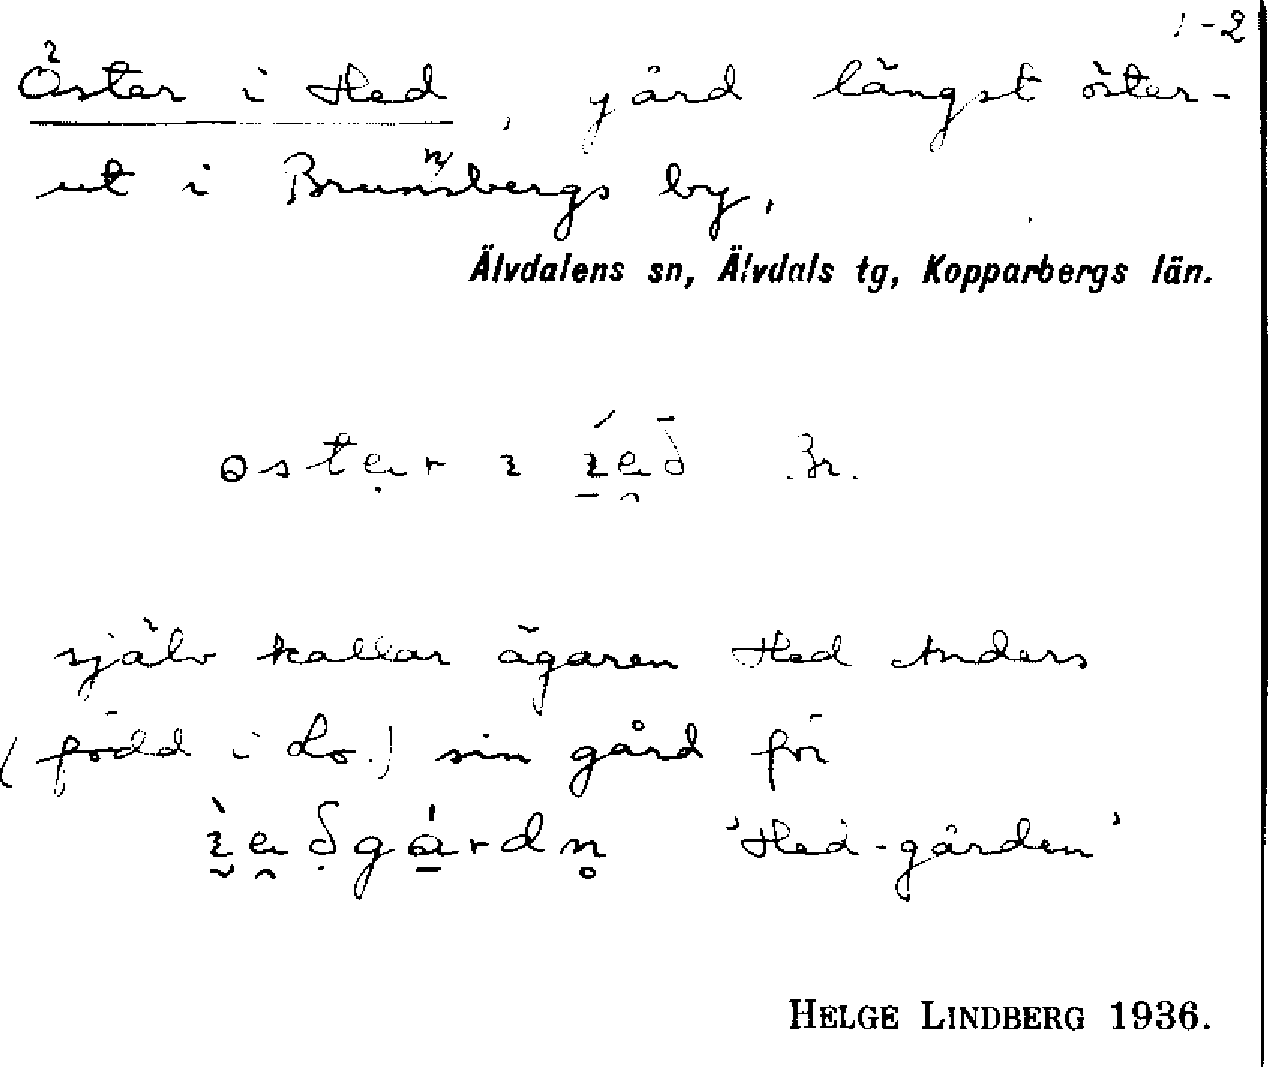 1-2
Öster i Hed, gård längst öster-
ut i Brunnsbergs by.
Älvdalens sn, Älvdals tg, Kopparbergs län.
Br.
själv kallar ägaren Hed Anders
(född i Lo.) sin gård för
'Hed-gården'
HELGE LINDBERG 1936.